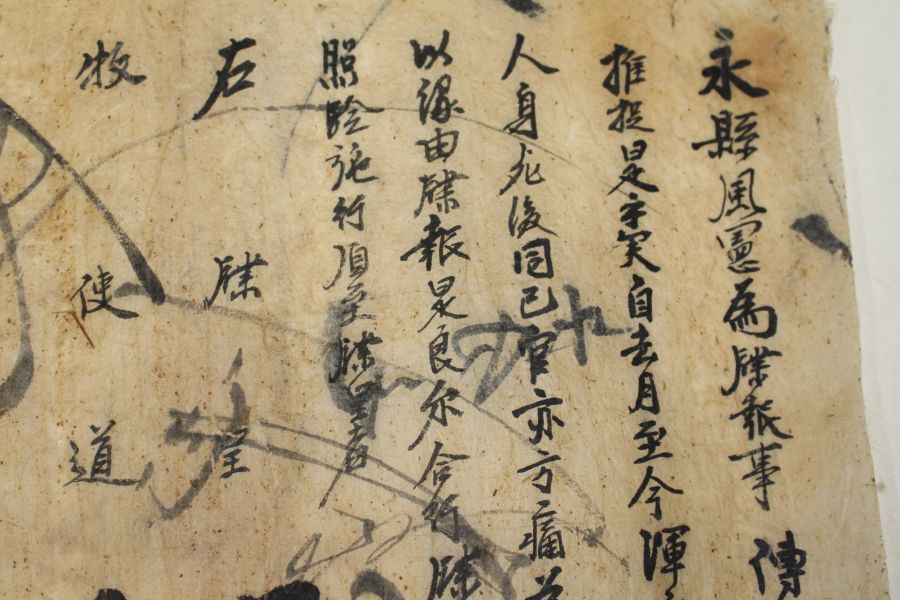 永縣風憲為牒報事 傳
推捉是乎矣自去月至今渾
人身死後同已官亦方痛
以緣由牒報是良尔合行牒
照驗施行須至牒呈者
右 牒 呈
牧 使 道